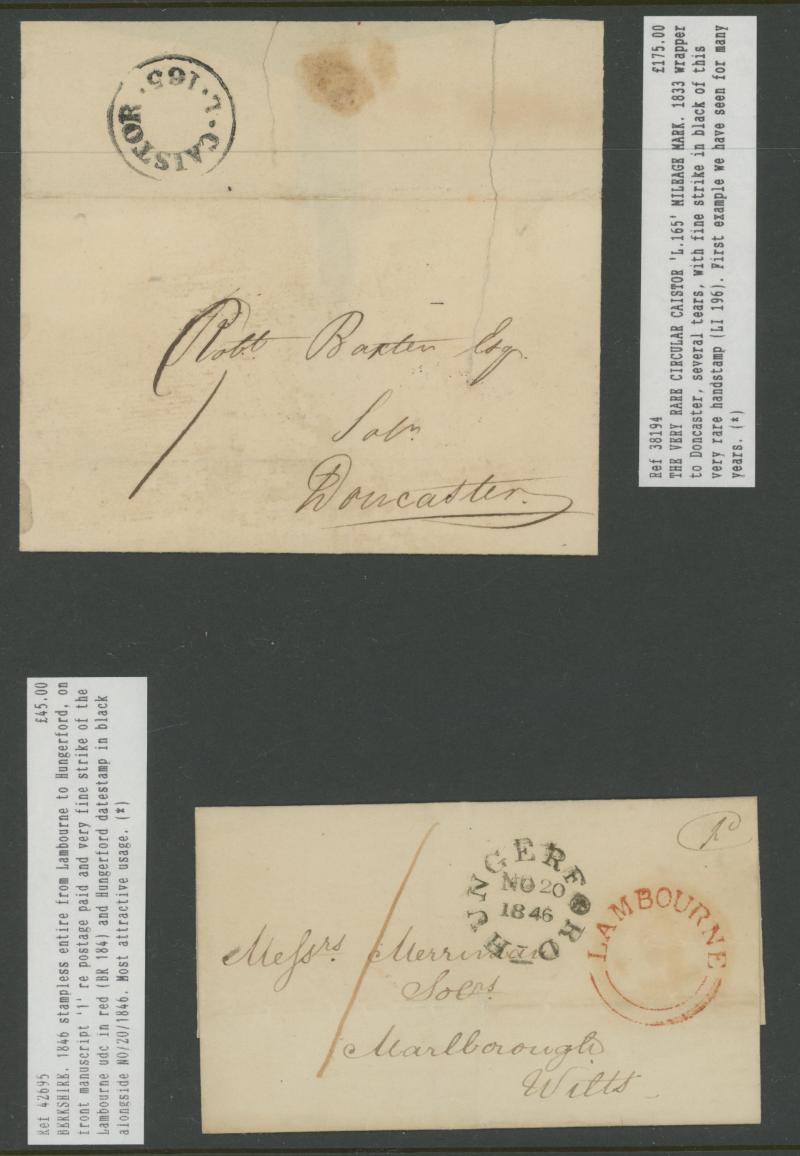 L.165.
CAISTOR
Robt. Baxter Esq.
Solr.
Doncaster.
Ref 38194 £175.00
THE VERY RARE CIRCULAR CAISTOR 'L.165' MILEAGE MARK. 1833 wrapper
to Doncaster, several tears, with fine strike in black of this
very rare handstamp (LI 196). First example we have seen for many
years. (*)
Ref 42695 £45.00
BERKSHIRE. 1846 stampless entire from Lambourne to Hungerford, on
front manuscript '1' re postage paid and very fine strike of the
Lambourne udc in red (BR 184) and Hungerford datestamp in black
alongside NO/20/1846. Most attractive usage. (*)
HUNGERFORD
NO 20
1846
LAMBOURNE
Messrs. Merriman
Solrs.
Marlborough
Wilts